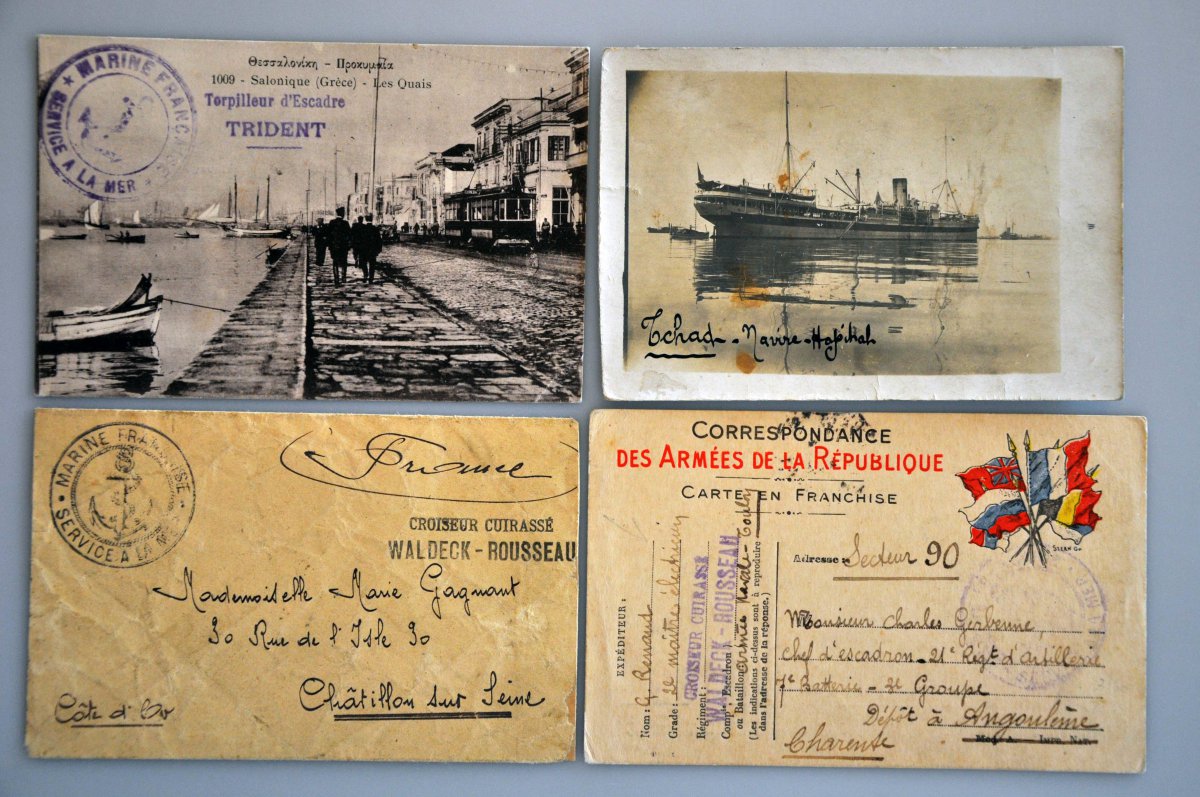 Θεσσαλονίκη – Προκυμαία
1009 - Salonique (Grèce) - Les Quais
MARINE FRANÇAISE
SERVICE A LA MER
Torpilleur d'Escadre
TRIDENT
Tchad - Navire-Hopital
MARINE FRANÇAISE
SERVICE A LA MER
France
CROISEUR CUIRASSÉ
WALDECK-ROUSSEAU
Mademoiselle Marie Gagnant
30 Rue de l'Isle 30
Châtillon sur Seine
Côte d'Or
CORRESPONDANCE
DES ARMÉES DE LA RÉPUBLIQUE
CARTE EN FRANCHISE
STERN Gr.
Adresse : Secteur 90
Monsieur Charles Gerbenne,
chef d'escadron - 21e Régt d'artillerie
7e Batterie - 2e Groupe
Dépôt à Angoulême
Charente
EXPÉDITEUR :
Nom : G. Renaud
Grade : 2e maître électricien
Régiment :
CROISEUR CUIRASSÉ
WALDECK-ROUSSEAU
ou Bataillon Armée Navale - Toulon
(Les indications ci-dessus sont à reproduire
dans l'adresse de la réponse.)